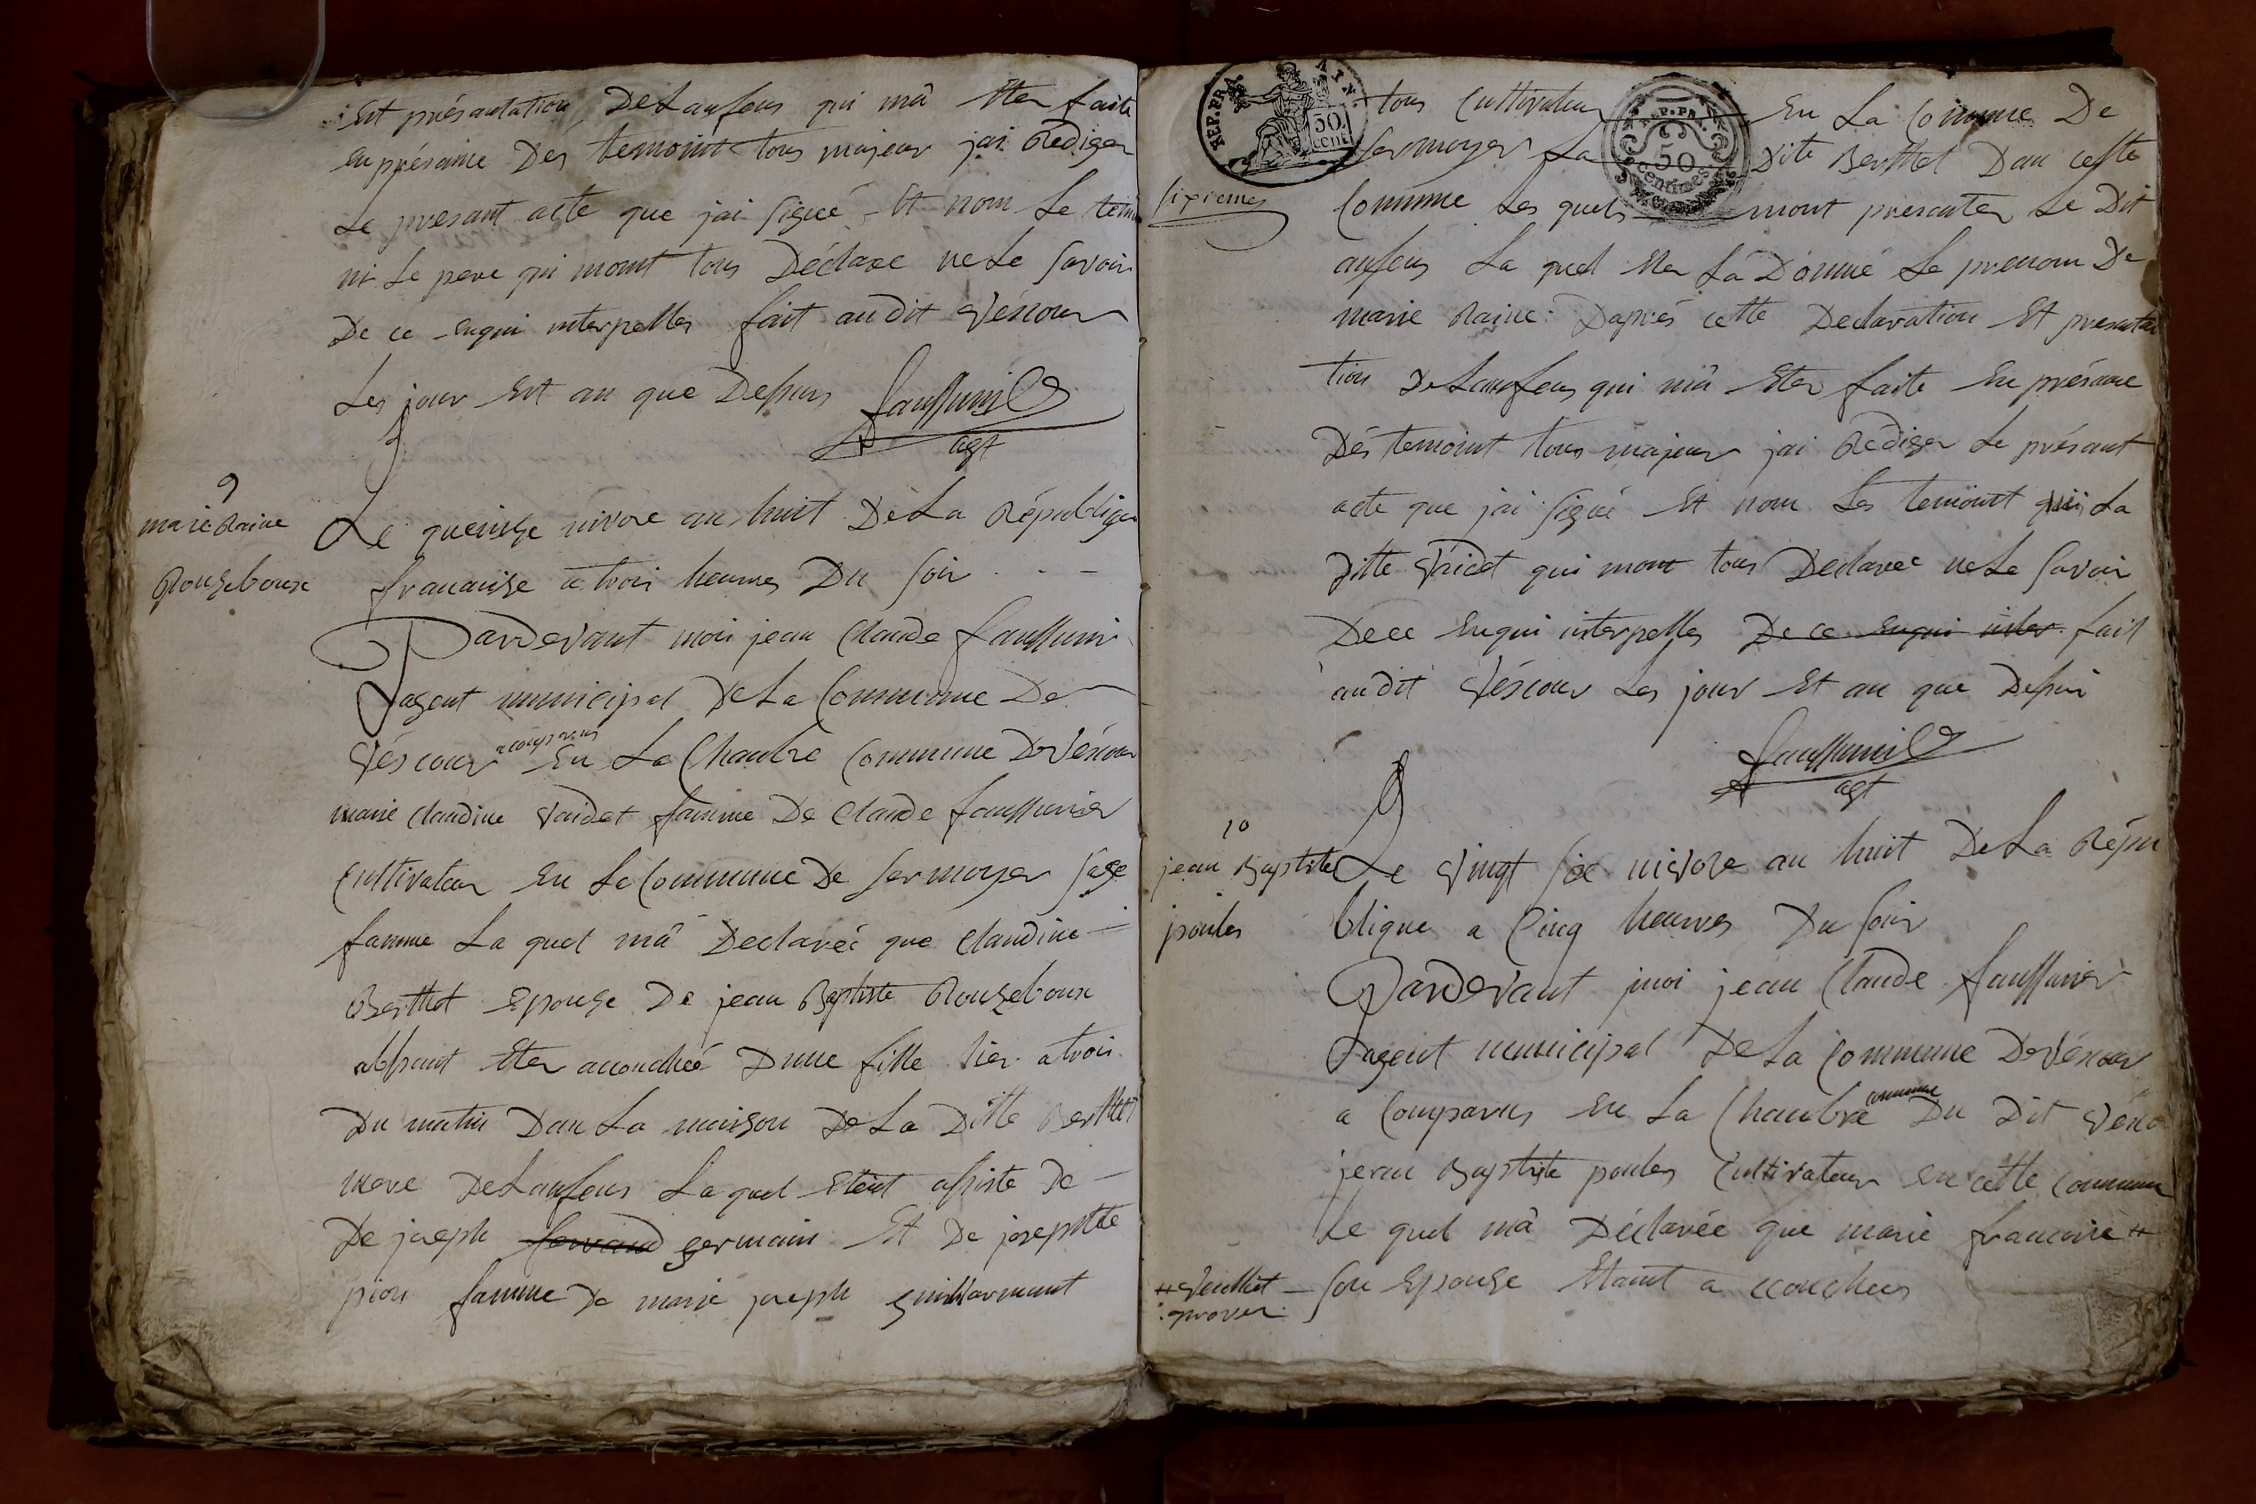 Et présantation De Lanfens qui mà Eter faite
En présaince Des temoint tous majeur jai Rediger
Le presant acte que jai signé Et nom Le tem
ni Le pere qui mont tous Déclare ne Le savoir
De ce Enqui interpelles fait audit Véscour
Les jour Et an que Dessus
agt
9
marie Raine
Rouseboux
Le queinse nivose an huit De La Républiqu
francaise a trois heures Du soir
Pardevant moi jean Claude
agent municipal De La Commune De
Véscour a comparus En La Chambre Commune De Véscour
marie Claudine Vaidet famme De Claude
Cultivateur En La Commune De Sermoyer sage
famme La quel mà Declareé que Claudine
Berthet Epouse De jean Baptiste Rouseboux
Etter accouchéé Dune fille hier a trois
Du matin Dan La maison De La Ditte Berthet
mere De Lanfens La quel Eteint assiste De
De joseph germain Et De josephtte
pion famme De marie joseph guilliarmant
REP. FRA.
AIN.
50
cent
REP. FRA.
50
centimes
tous Cultivateur En La Commune De
Sermoyer La Dite Berthet Dan cette
sixieme
Commune Les quels mont presenter Le Dit
anfens La quel Eter Là Donné Le prenom De
marie Raine Daprés cette Declaration Et presenta
tion De Lanfens qui mà Eter faite En présance
Dés temoint tous majeur jai Rediger Le présant
acte que jai signé Et nom Les temoint La
Ditte qui mont tous Declareé ne Le savoir
De ce Enqui interpelles De ce Enqui inter fait
audit Véscour Les jour Et an que Dessus
agt
10
jean Baptiste
poules
Le Vingt six nivose an huit De La Répu
blique a Cinq heures Du soir
Pardevant moi jean Claude
agent municipal De La Commune De Véscour
a Comparus En La Chambre commune Du Dit Vésco
jean Baptiste poules Cultivateur En cette commune
Le quel mà Déclarée que marie francoise #
# Veuillet
aprover
son Epouse Etaint a ccouchees